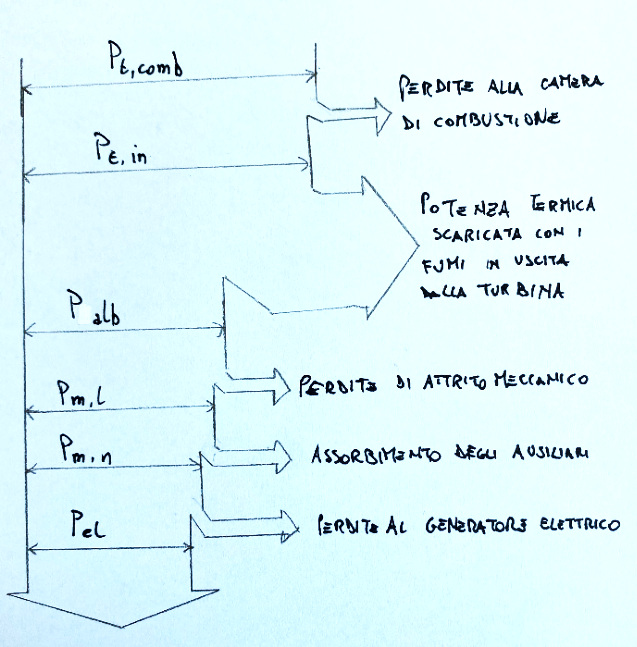 Pt,comb
PERDITE ALLA CAMERA
DI COMBUSTIONE
Pt,in
POTENZA TERMICA
SCARICATA CON I
FUMI IN USCITA
DALLA TURBINA
Palb
PERDITE DI ATTRITO MECCANICO
Pm,l
Pm,n
ASSORBIMENTO DEGLI AUSILIARI
Pel
PERDITE AL GENERATORE ELETTRICO